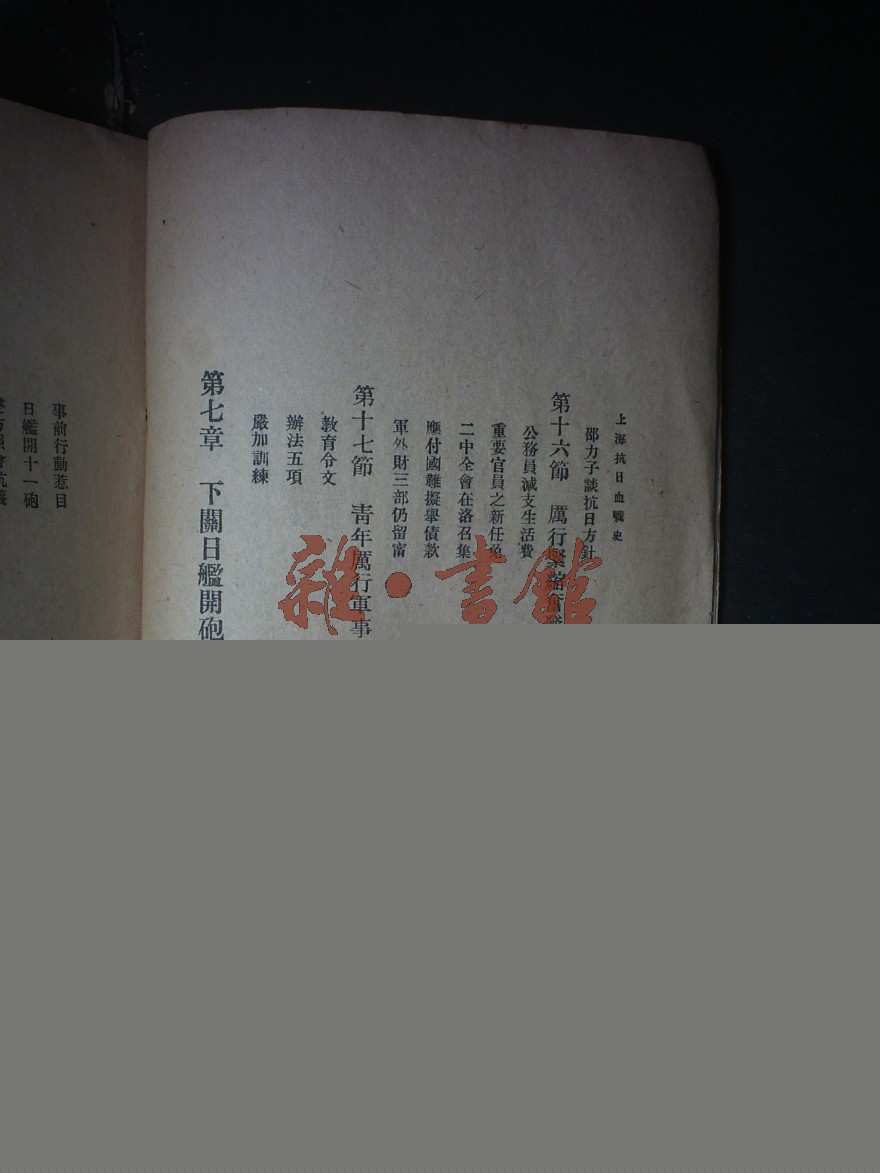 上海抗日血戰史
邵力子談抗日方針
第十六節　厲行緊縮奮
公務員減支生活費
重要官員之新任免
二中全會在洛召集
應付國難擬舉債款
軍外財三部仍留甯
第十七節　靑年厲行軍事
敎育令文
辦法五項
嚴加訓練
第七章　下關日艦開砲
事前行動惹目
日艦開十一砲
雜·書館